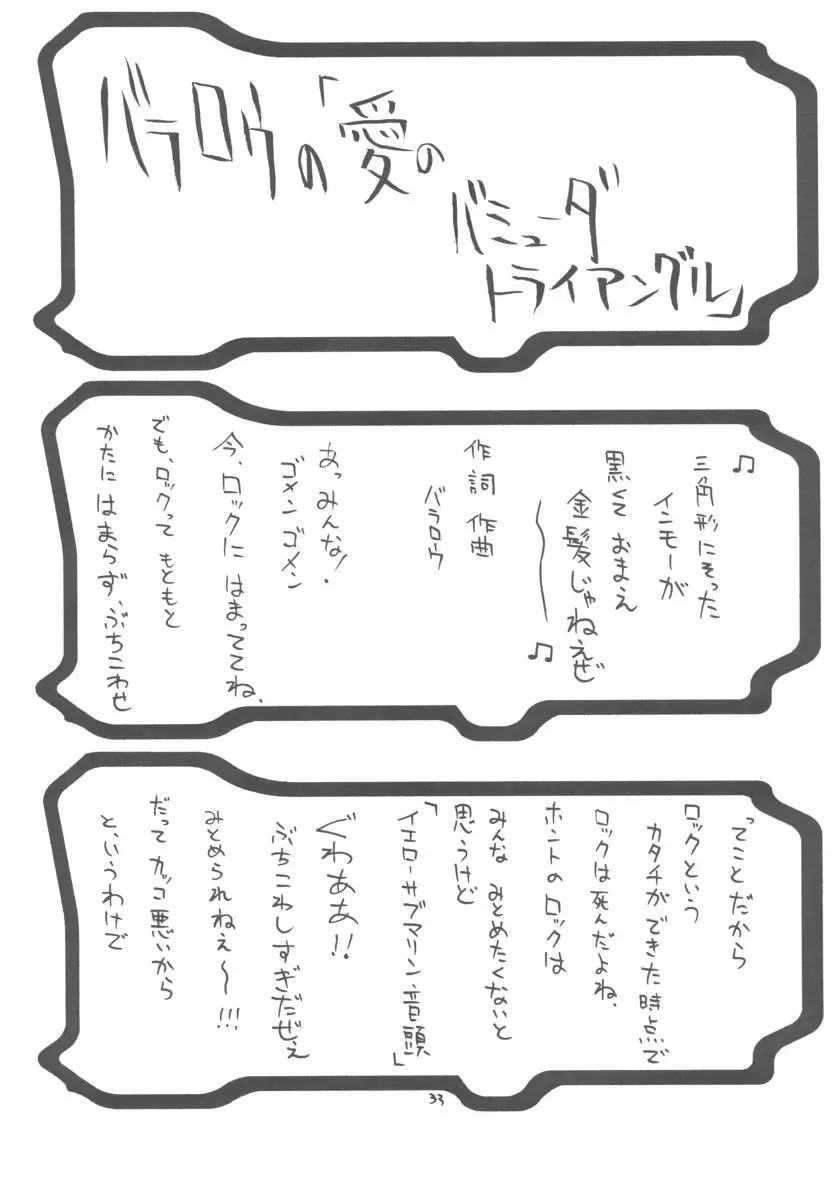 バラロウの「愛の
バミューダ
トライアングル」
♫三角形にそった
インモーが
黒くて おまえ
金髪じゃねえぜ
〜♫
作詞 作曲
バラロウ
あっみんな!
ゴメン ゴメン
今、ロックに はまっててね、
でも、ロックって もともと
かたに はまらず、ぶちこわせ
ってことだから
ロックという
カタチができた時点で
ロックは死んだよね、
ホントの ロックは
みんな みとめたくないと
思うけど
「イエローサブマリン音頭」
ぐわああ!!
ぶちこわしすぎだぜぇ
みとめられねぇ〜!!!
だって カッコ悪いから
と、いうわけで
33